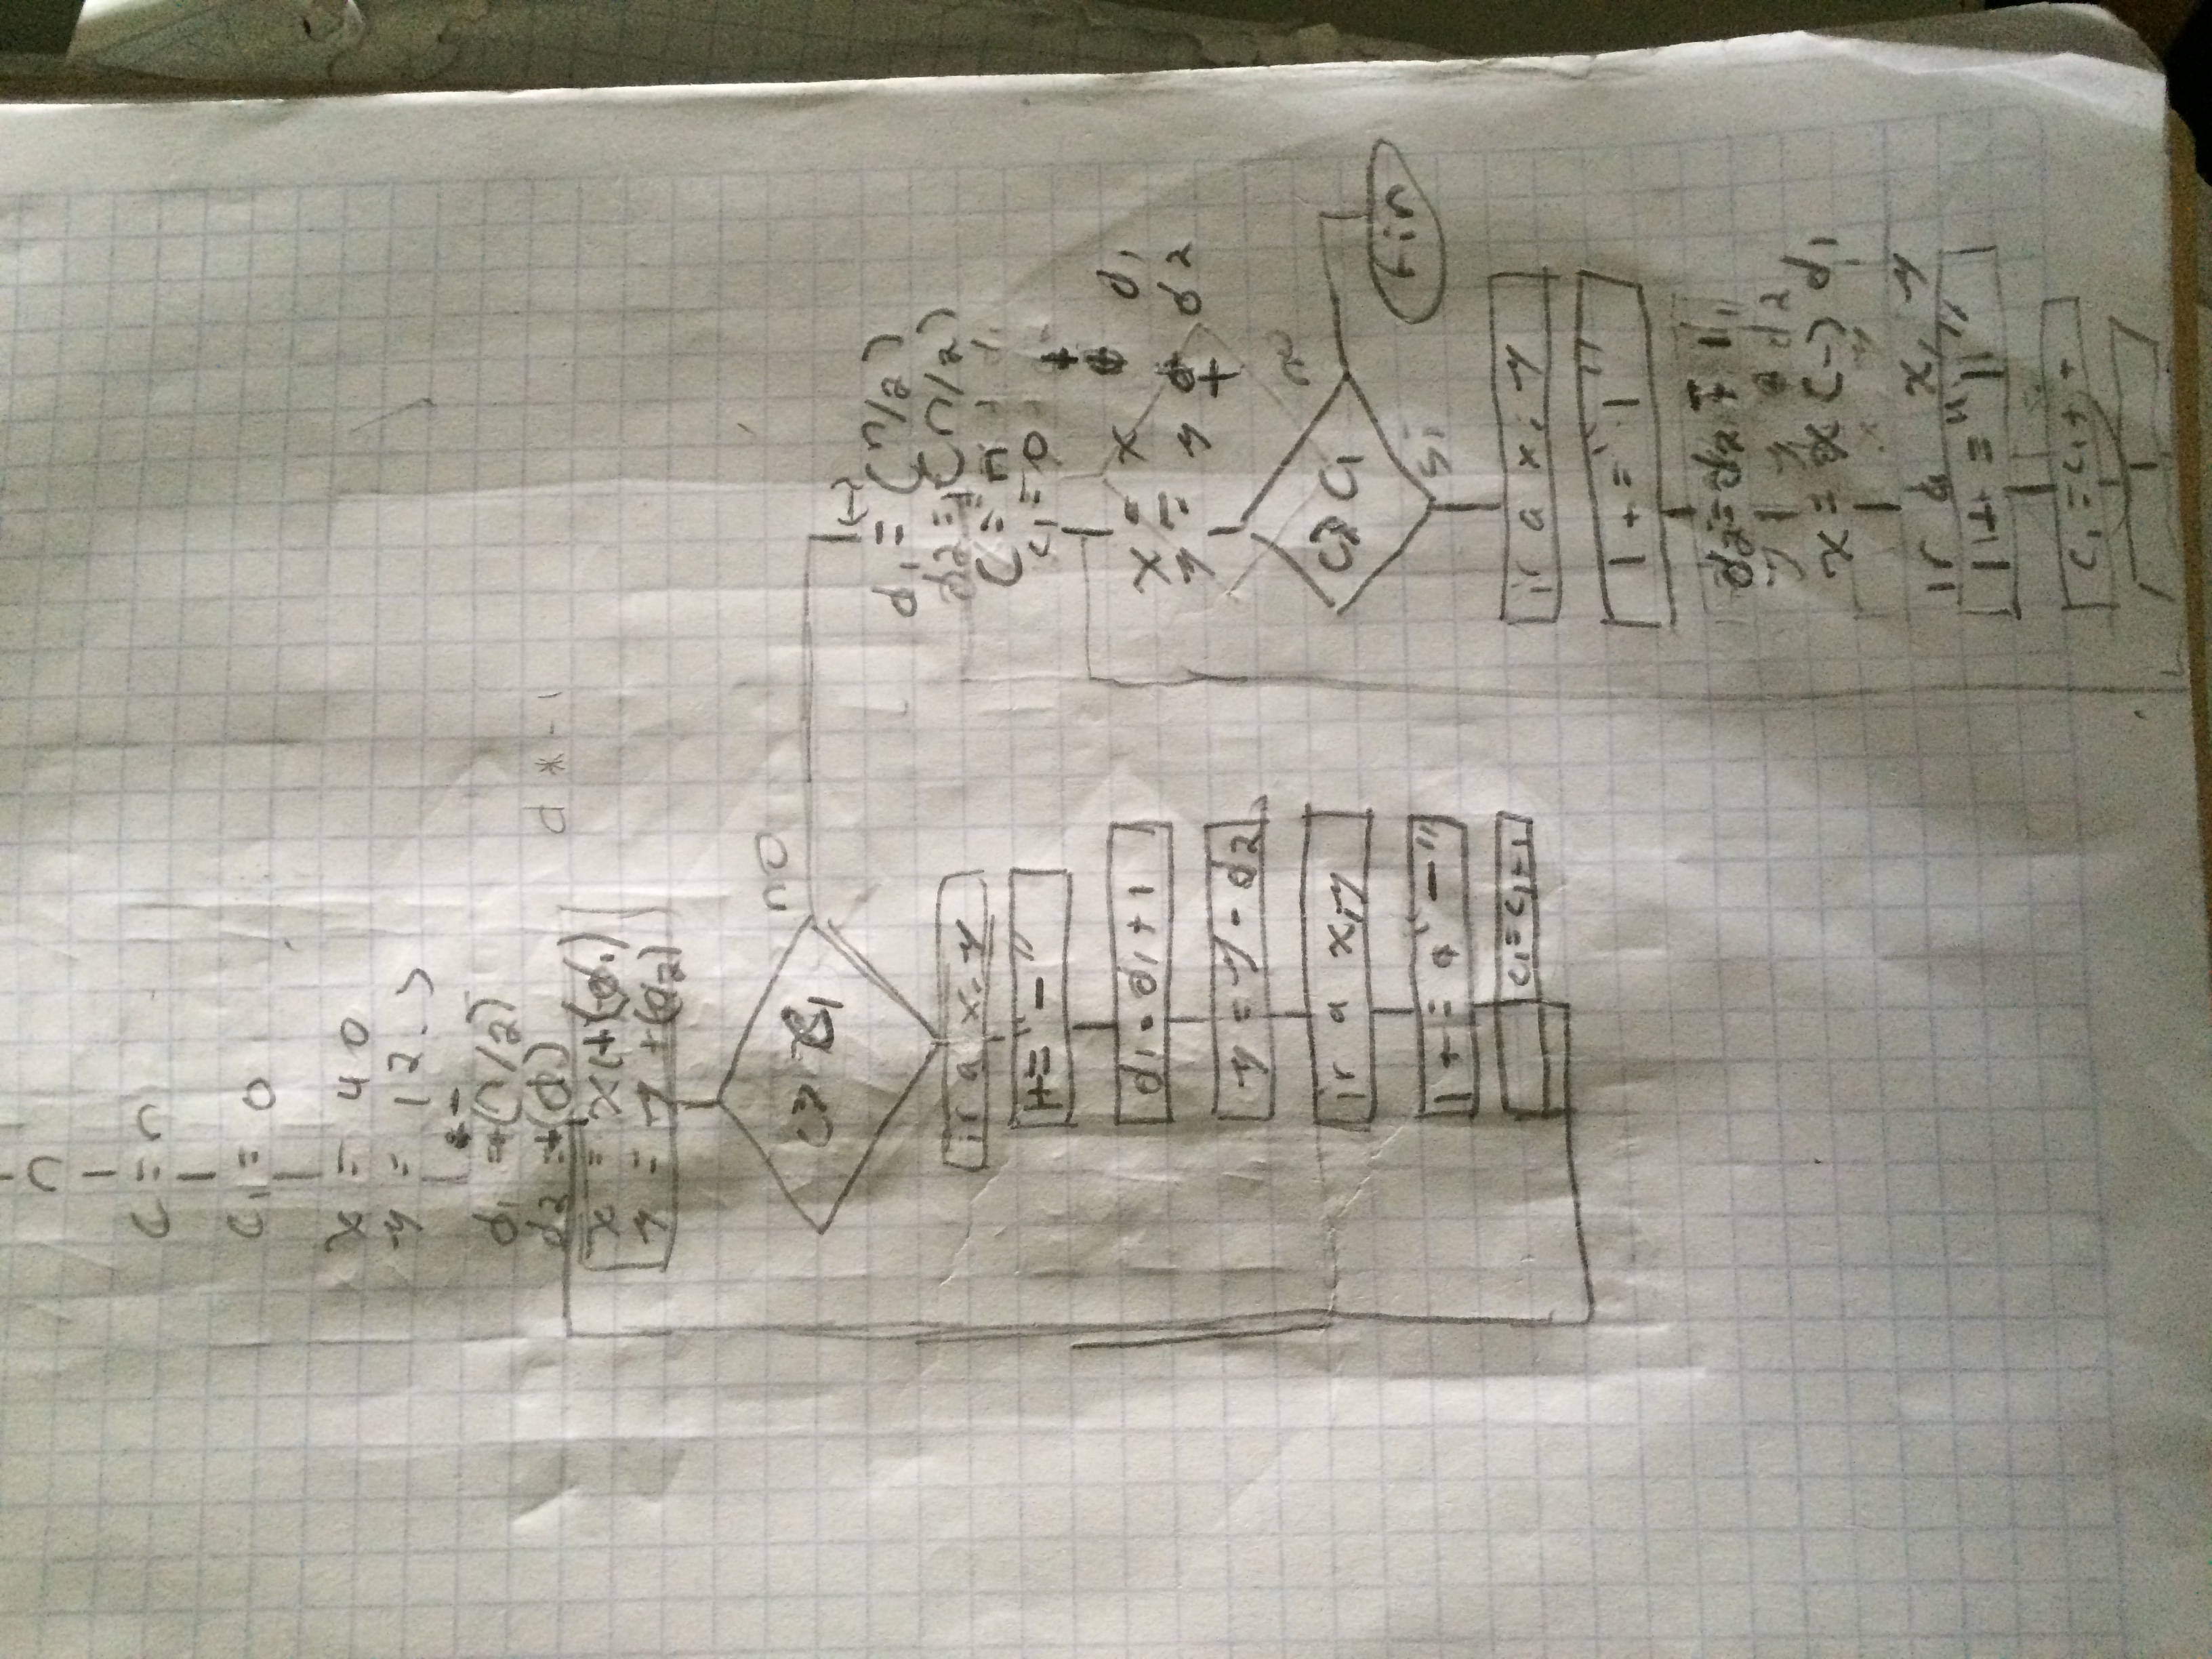 n
c = n
c1 = 0
x = 40
y = 12.5
d1 =+(n/2)
d2 =+(d1)
d * - 1
x = x+(-d1)
y = y +(d2)
c > c1
no
ir a x, y
+= "-"
d1 = d1 + 1
y = y - d2
ir a x,y
1 += "-"
c1 = c1+1
d1 = (n/2)
d2 = (n/2)
c = n
c1 = 0
x = x + d1
y = y + d2
c ≥ c1
no
fin
si
ir a x, y
1 += "1"
d2 = d2 + 1
y y d2
x = x (-) d1
ir a x, y
1+ = "1"
c1 = c1 + +